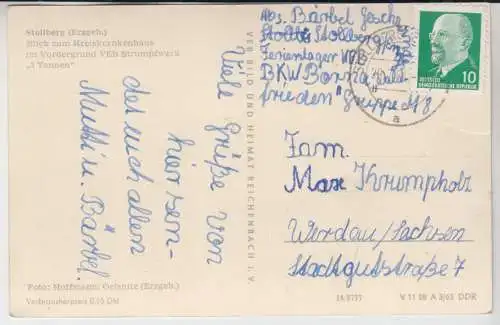 Stollberg (Erzgeb.)
Blick zum Kreiskrankenhaus
im Vordergrund VEB Strumpfwerk
„3 Tannen“
Viele Grüße von
hier sen-
det euch allen
Mutti u. Bärbel.
Foto: Hoffmann, Oelsnitz (Erzgeb.)
Verbraucherpreis 0,15 DM
VEB BILD UND HEIMAT REICHENBACH I. V.
Abs. Bärbel
Stollberg
Ferienlager VEB
BKW Borna „Wald-
frieden“ Gruppe M8
DEUTSCHE
DEMOKRATISCHE REPUBLIK
10
a
Fam.
Max Krumpholz
Werdau/Sachsen
Stadtgutstraße 7
V 11 28 A 3/63 DDR